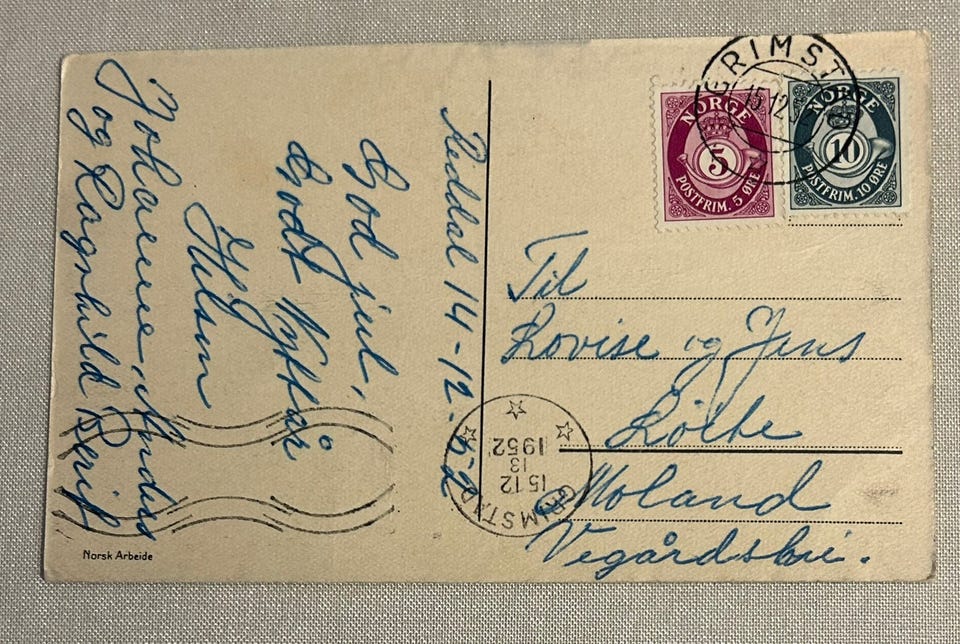 Reddal 14-12-52
God jul,
Godt Nyttår
Hilsen
Johanne, Anders
og Ragnhild Berit
Norsk Arbeide
GRIMST
15.12.5
NORGE
5
POSTFRIM. 5 ØRE
NORGE
10
POSTFRIM. 10 ØRE
Til
Lovise og Jens
Moland
Vegårdshei.
GRIMSTAD
15 12
13
1952